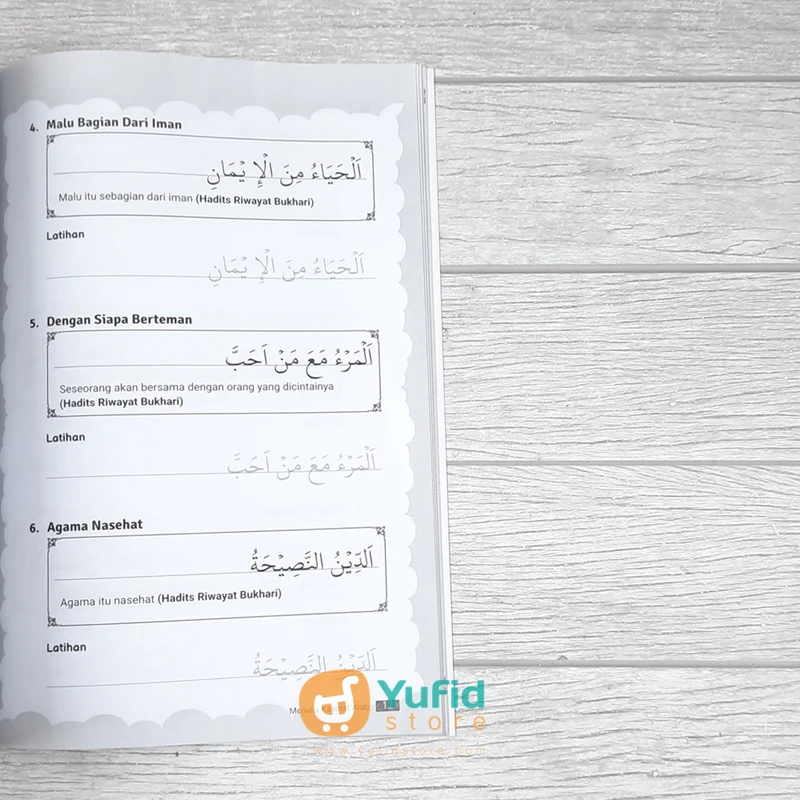 4. Malu Bagian Dari Iman
اَلْحَيَاءُ مِنَ الْإِ يْمَانِ
Malu itu sebagian dari iman (Hadits Riwayat Bukhari)
Latihan
اَلْحَيَاءُ مِنَ الْإِ يْمَانِ
5. Dengan Siapa Berteman
اَلْمَرْءُ مَعَ مَنْ اَحَبَّ
Seseorang akan bersama dengan orang yang dicintainya
(Hadits Riwayat Bukhari)
Latihan
اَلْمَرْءُ مَعَ مَنْ اَحَبَّ
6. Agama Nasehat
اَلدِّيْنُ النَّصِيْحَةُ
Agama itu nasehat (Hadits Riwayat Bukhari)
Latihan
اَلدِّيْنُ النَّصِيْحَةُ
Yufid
store
www.yufidstore.com